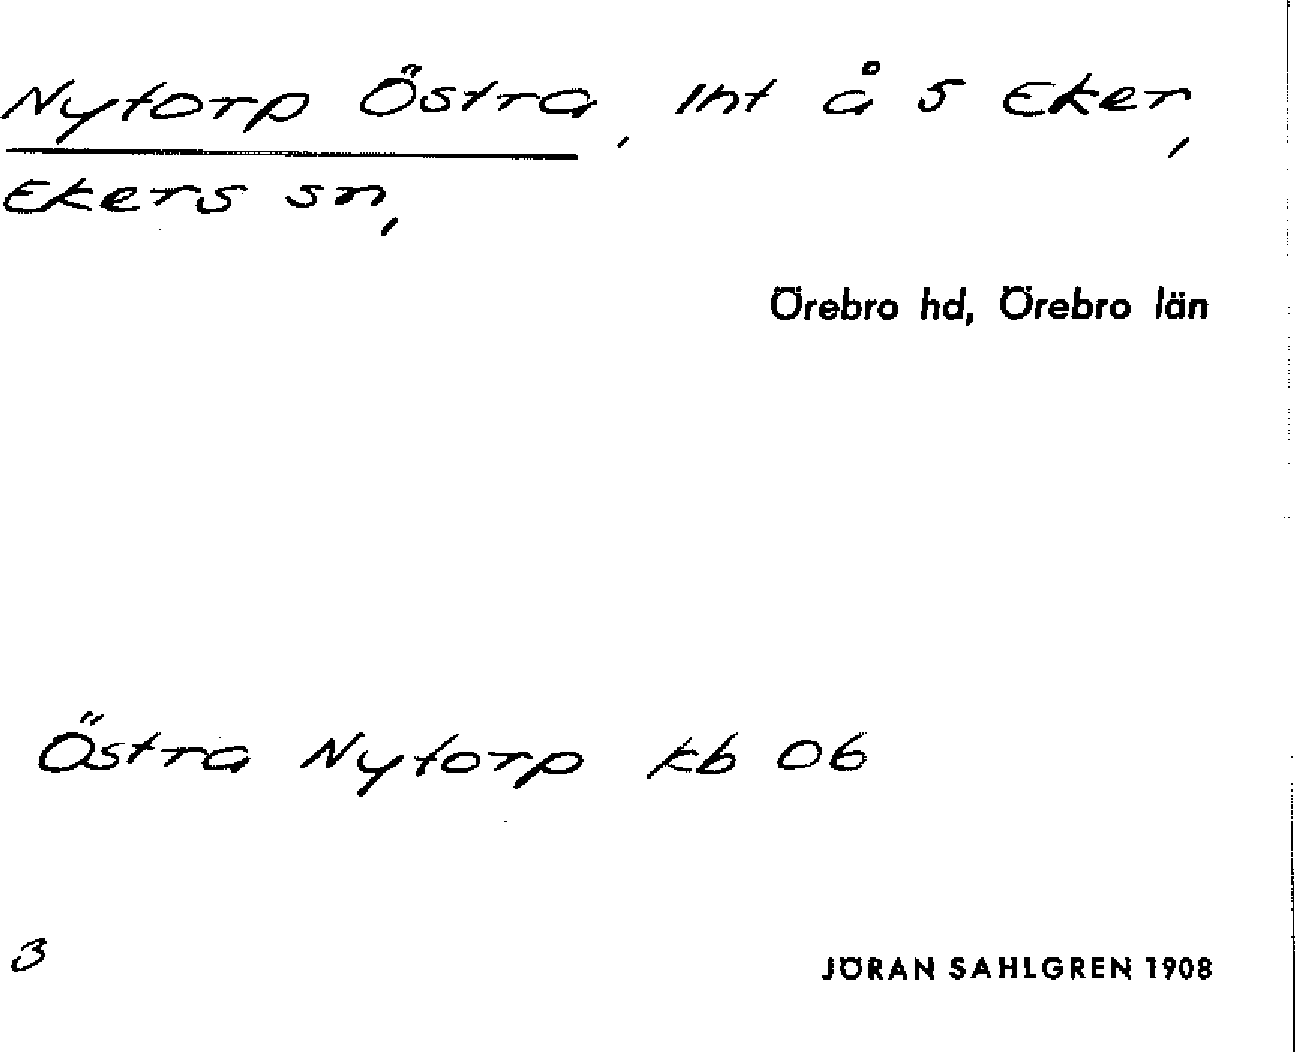 Nytorp Östra, Int å 5 Eker,
Ekers sn,
Örebro hd, Örebro län
Östra Nytorp kb 06
3
JÖRAN SAHLGREN 1908